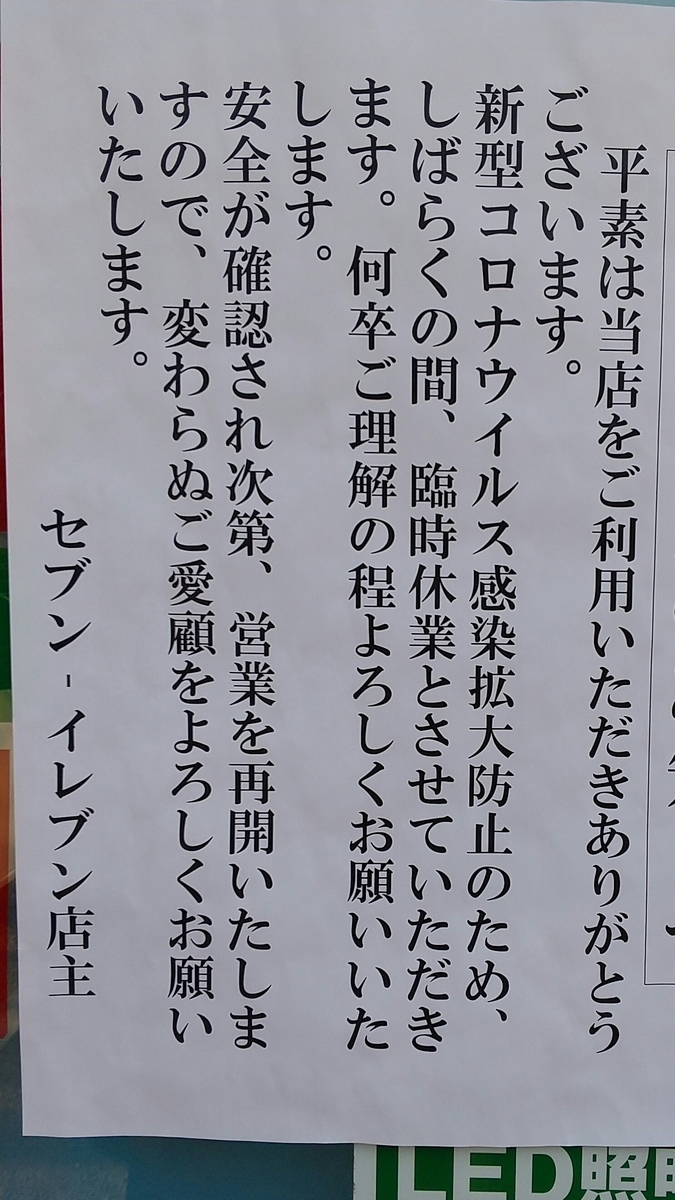 平素は当店をご利用いただきありがとう
ございます。
新型コロナウイルス感染拡大防止のため、
しばらくの間、臨時休業とさせていただき
ます。何卒ご理解の程よろしくお願いいた
します。
安全が確認され次第、営業を再開いたしま
すので、変わらぬご愛顧をよろしくお願い
いたします。
セブン-イレブン店主
LED照明